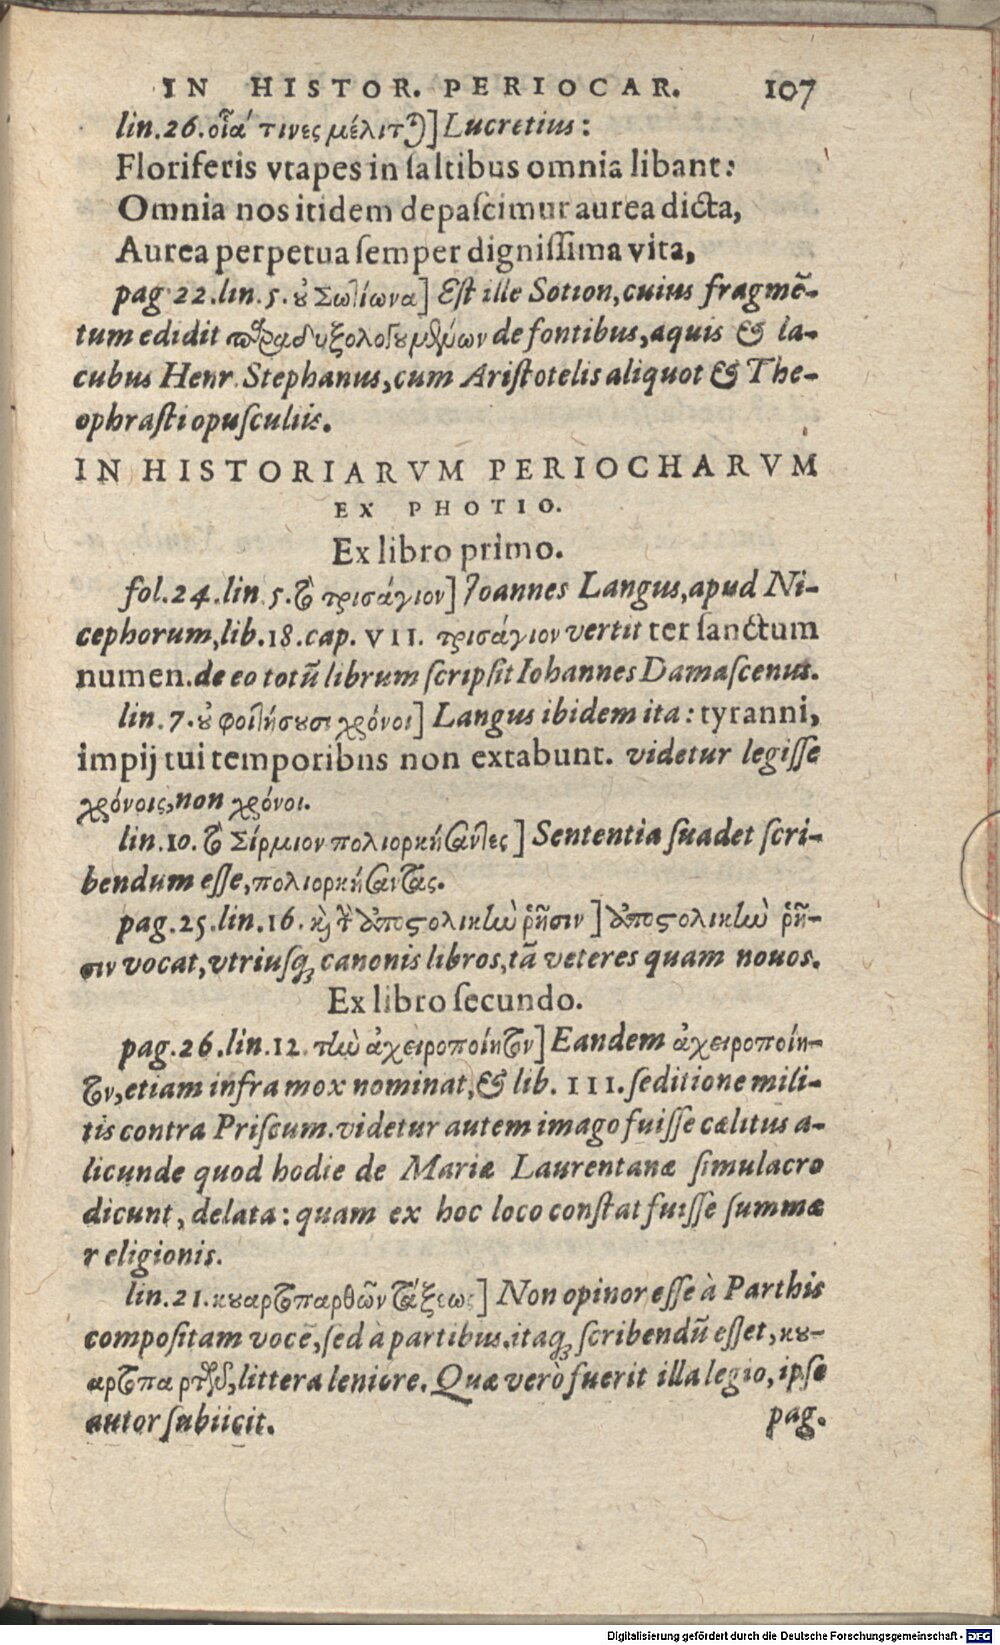 IN HISTOR. PERIOCAR. 107
lin.26.οἷά τινες μέλιτται] Lucretius:
Floriferis vtapes in saltibus omnia libant:
Omnia nos itidem depascimur aurea dicta,
Aurea perpetua semper dignissima vita,
pag 22.lin.5. οὐ Σωτίωνα] Est ille Sotion, cuius fragmē-
tum edidit de fontibus, aquis & la-
cubus Henr. Stephanus, cum Aristotelis aliquot & The-
ophrasti opusculiis.
IN HISTORIARVM PERIOCHARVM
EX PHOTIO.
Ex libro primo.
fol.24.lin 5. τὸ τρισάγιον] Ioannes Langus, apud Ni-
cephorum, lib.18.cap. VII. τρισάγιον vertit ter sanctum
numen. de eo totū librum scripsit Iohannes Damascenus.
lin.7. οὐ φοιτήσουσι χρόνοι] Langus ibidem ita: tyranni,
impij tui temporibns non extabunt. videtur legisse
χρόνοις, non χρόνοι.
lin.10. τὸ Σίρμιον πολιορκήσαντες] Sententia suadet scri-
bendum esse, πολιορκήσαντας.
pag.25.lin.16. καὶ τὴν ἀποστολικὴν ῥῆσιν] ἀποστολικὴν ῥῆ-
σιν vocat, vtriusq; canonis libros, tā veteres quam nouos.
Ex libro secundo.
pag.26.lin.12. τὴν ἀχειροποίητον] Eandem ἀχειροποίη-
τον, etiam infra mox nominat, & lib. III. seditione mili-
tis contra Priscum. videtur autem imago fuisse cælitus a-
licunde quod hodie de Mariæ Laurentanæ simulacro
dicunt, delata: quam ex hoc loco constat fuisse summæ
religionis.
lin.21. κουαρτοπαρθῶν τάξεως] Non opinor esse à Parthis
compositam vocē, sed à partibus. itaq; scribendū esset, κου-
αρτοπαρτῶν, littera leniore. Quæ verò fuerit illa legio, ipse
autor subiicit.
pag.
Digitalisierung gefördert durch die Deutsche Forschungsgemeinschaft - DFG